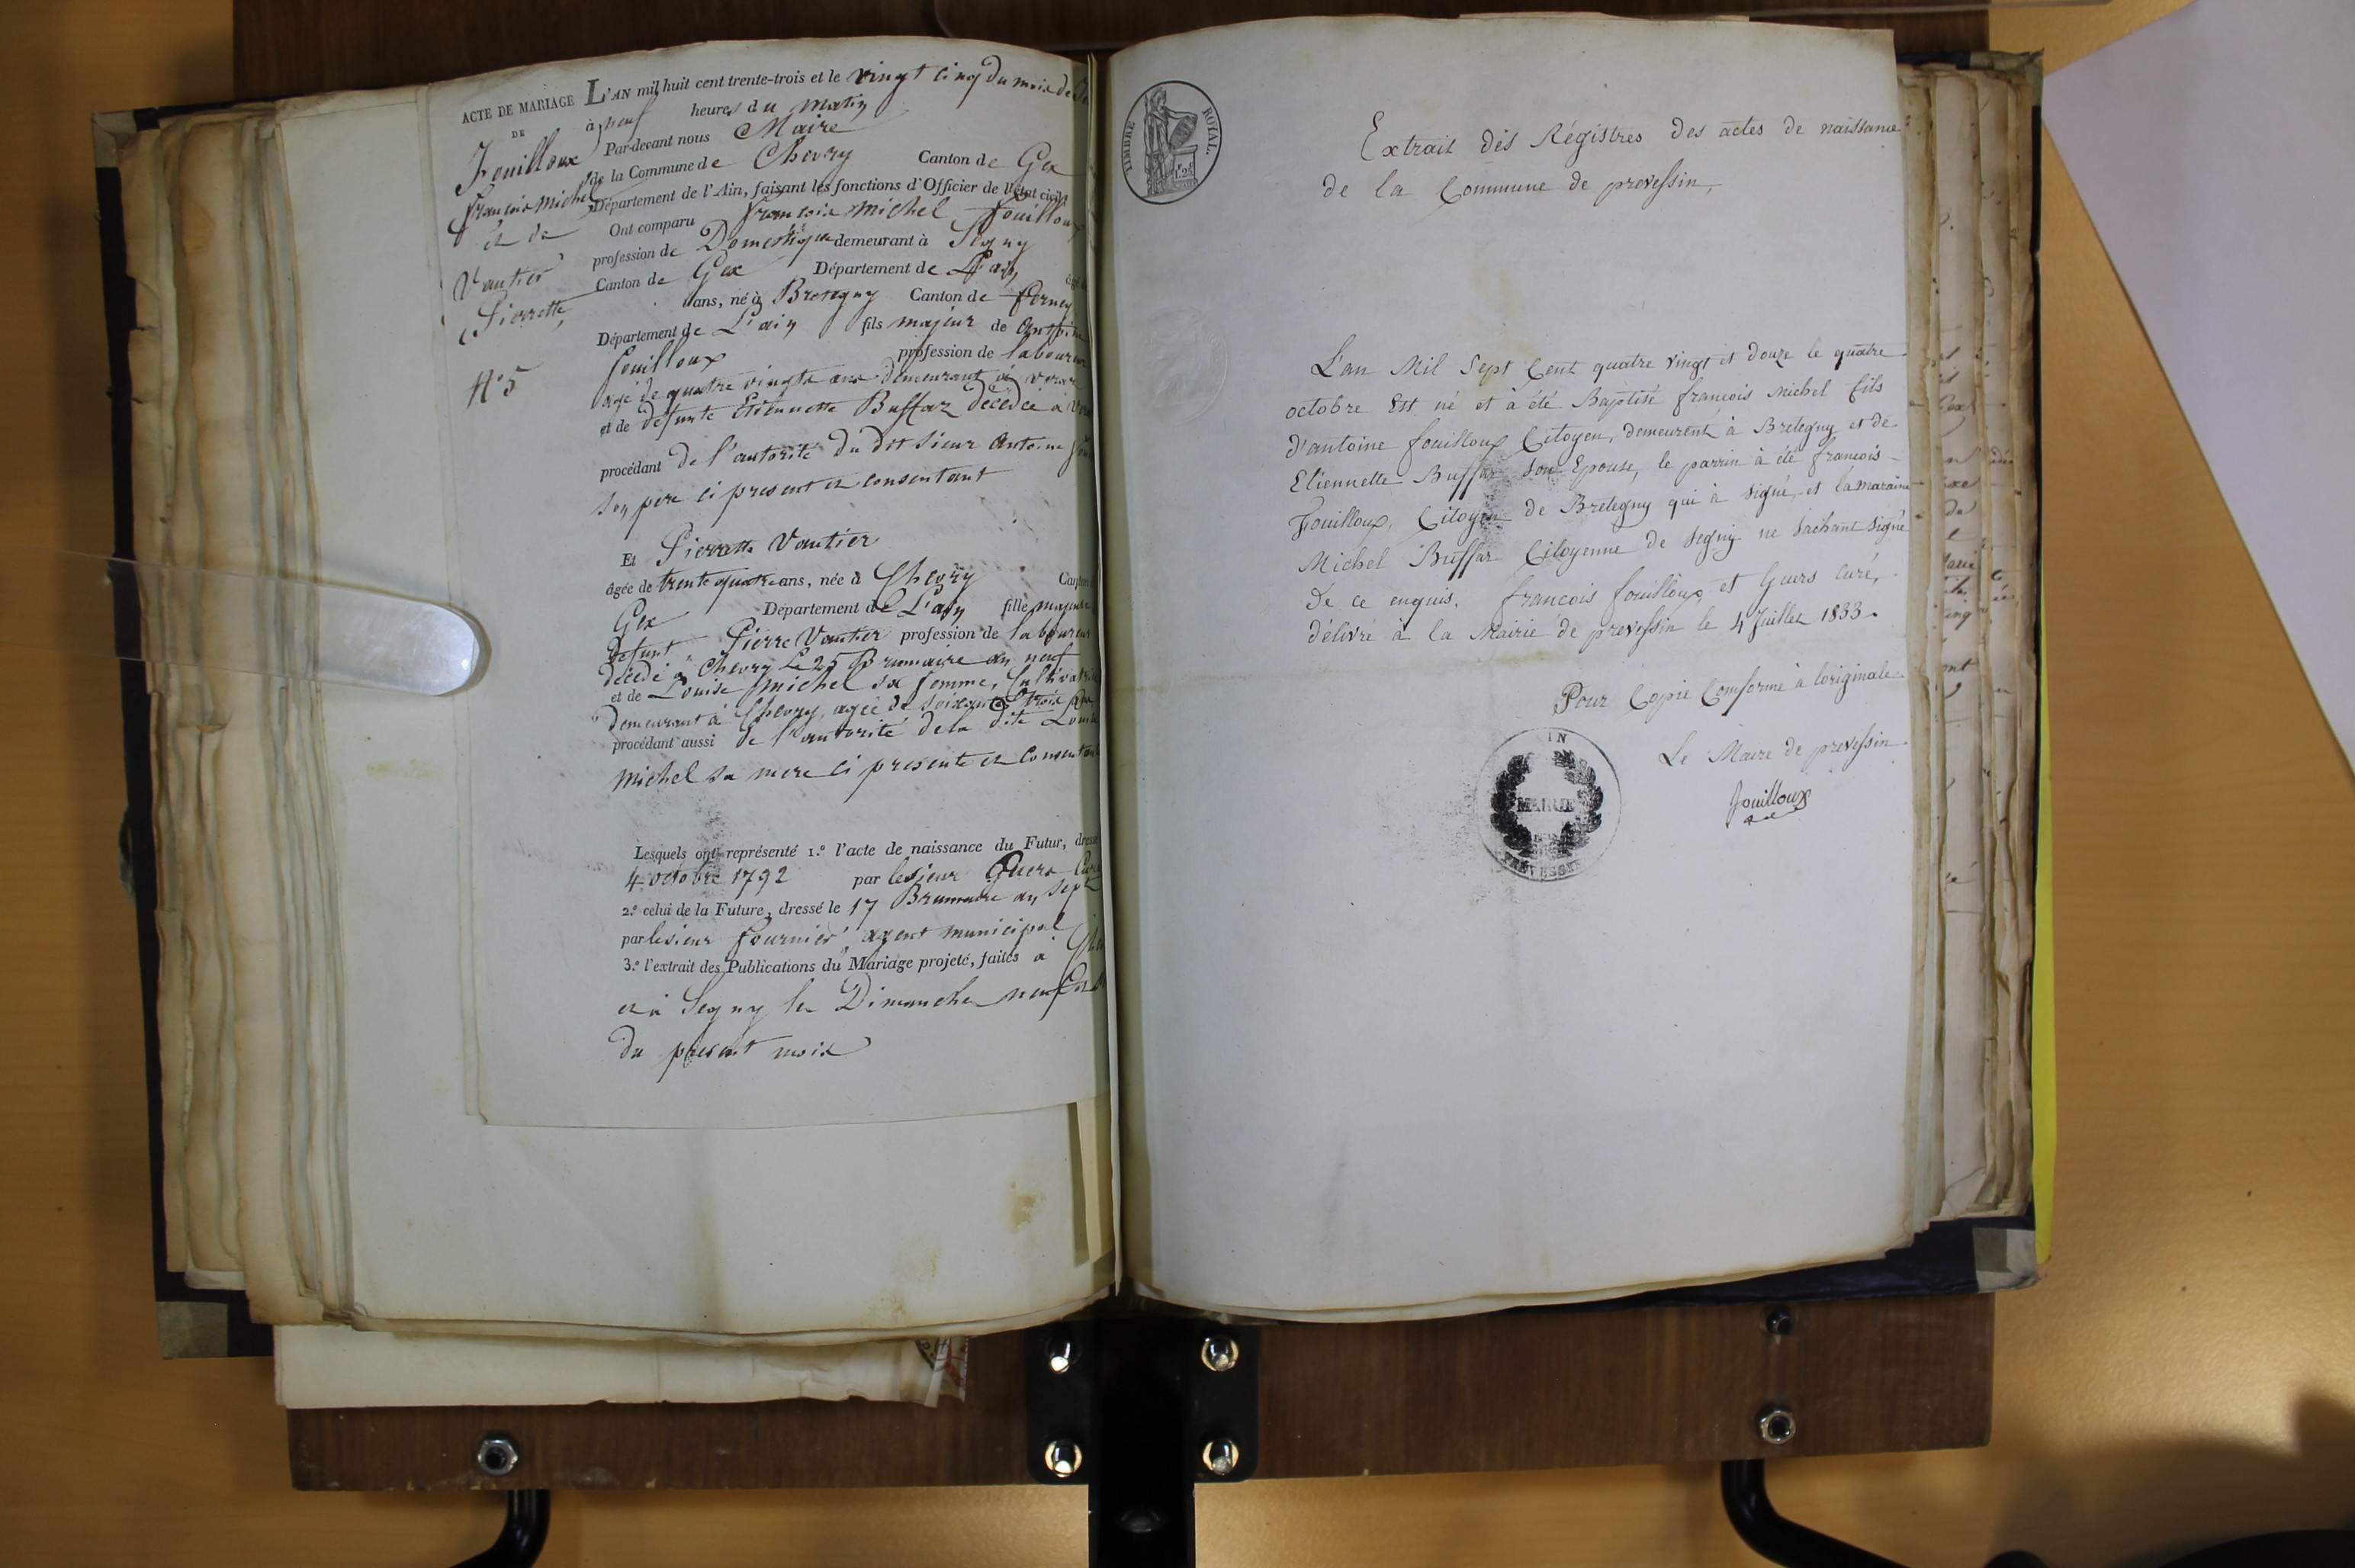 ACTE DE MARIAGE
DE
Fouilloux
françois Michel
et de
Vautier
Pierrette
N° 5
L'AN mil huit cent trente-trois et le vingt cinq du mois de
à neuf heures du matin
Par-devant nous Maire
de la Commune de Chevry Canton de Gex
Département de l'Ain, faisant les fonctions d'Officier de l'état civil
Ont comparu françois Michel fouilloux
profession de Domestique demeurant à Segny
Canton de Gex Département de L'ain
ans, né à Bretegny Canton de ferney
Département de L'ain fils majeur de antoine
fouilloux profession de laboureur
agé de quatre vingts ans demeurant à
et de defunte Etiennette Buffaz décédée à
procédant de l'autorité du dit Sieur antoine
son pere ci present et consentant
Et Pierrette Vautier
âgée de trente quatre ans, née à Chevry Canton
Gex Département de L'ain fille majeure
defunt Pierre Vautier profession de laboureur
décédé à Chevry le 25 Brumaire an neuf
et de Louise Michel sa femme,
demeurant à Chevry, agée de soixante trois ans
procédant aussi de l'autorité de la dite Louise
Michel sa mere ci presente et consentante
Lesquels ont représenté 1.° l'acte de naissance du Futur,
4 octobre 1792 par le sieur Guers Curé
2.° celui de la Future, dressé le 17 Brumaire an sept
par le sieur fournier agent municipal
3.° l'extrait des Publications du Mariage projeté, faites à
et à Segny les Dimanches neuf
du present mois
TIMBRE ROYAL.
Extrait dés Régistres des actes de naissance
de la Commune de prevessin,
L'an Mil Sept Cent quatre vingt et douze le quatre
octobre Est né et à été Baptisé francois Michel fils
d'antoine fouilloux Citoyen, demeurent à Bretegny et de
Etiennette Buffaz son Epouse, le parrin à été francois
Fouilloux, Citoyen de Bretegny qui à signé, et la maraine
Michel Buffaz Citoyenne de Segny ne sachant signé
de ce enquis. francois fouilloux et Guers curé,
délivré à la Mairie de prevessin le 4 Juillet 1833.
Pour Copie Comforme à loriginale
Le Maire de prevessin
fouilloux
MAIRIE